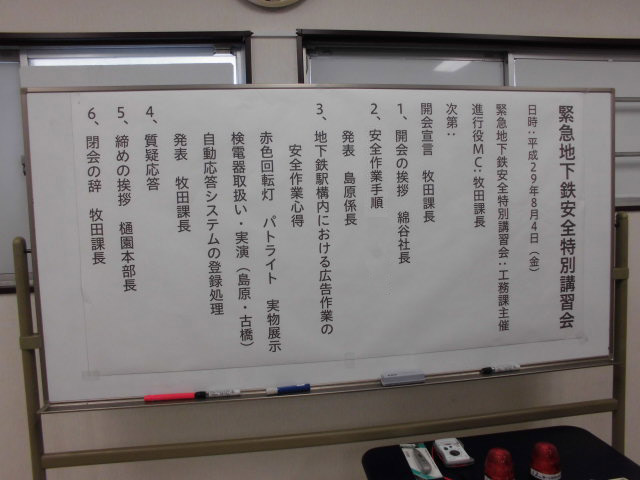 緊急地下鉄安全特別講習会
日時：平成29年8月4日（金）
緊急地下鉄安全特別講習会：工務課主催
進行役MC：牧田課長
次第：
開会宣言　牧田課長
1、開会の挨拶　綿谷社長
2、安全作業手順
発表　島原係長
3、地下鉄駅構内における広告作業の
安全作業心得
赤色回転灯　パトライト　実物展示
検電器取扱い・実演（島原・古橋）
自動応答システムの登録処理
発表　牧田課長
4、質疑応答
5、締めの挨拶　樋園本部長
6、閉会の辞　牧田課長